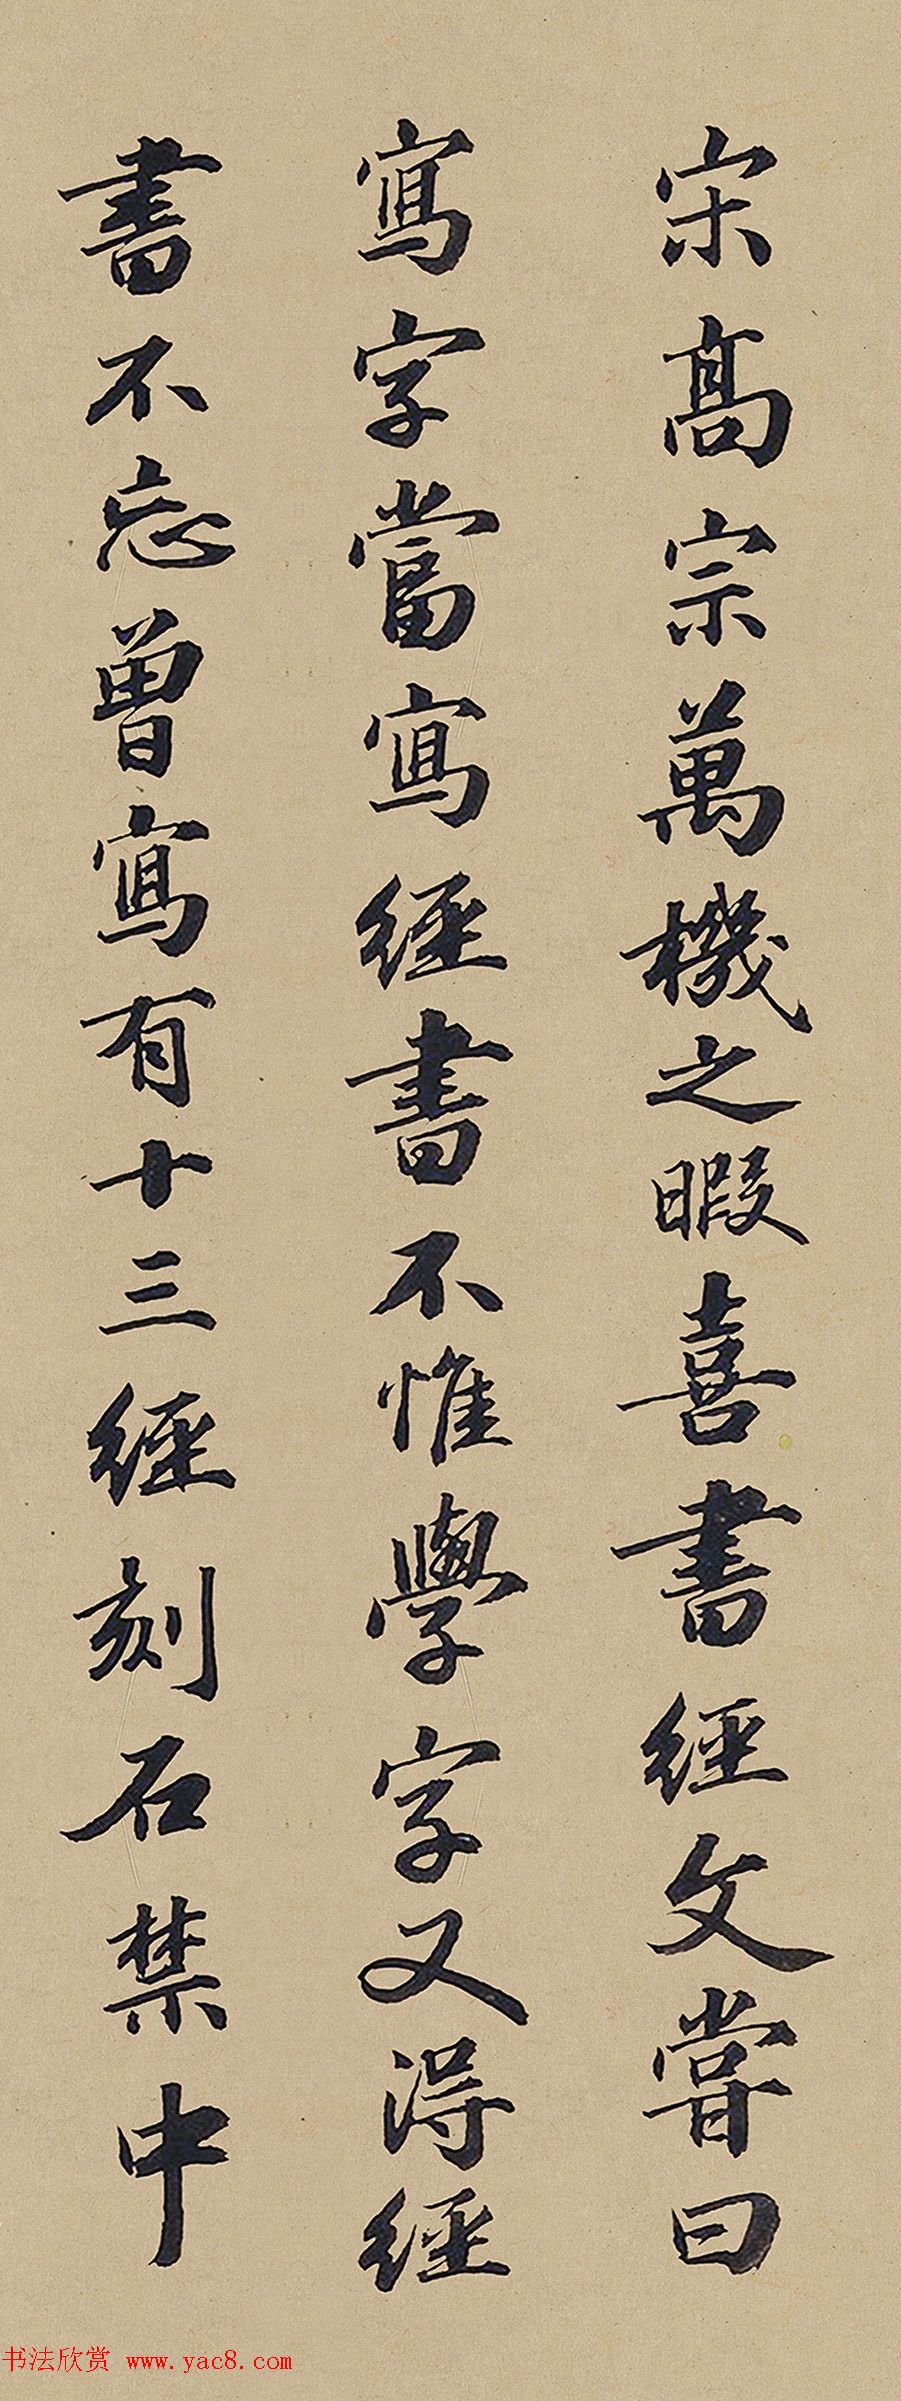 宋高宗萬機之暇喜書經文嘗曰
寫字當寫經書不惟學字又得經
書不忘曾寫有十三經刻石禁中
书法欣赏 www.yac8.com